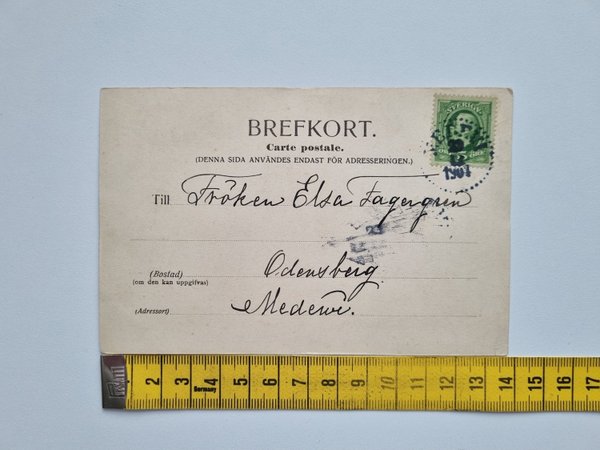 BREFKORT.
Carte postale.
(DENNA SIDA ANVÄNDES ENDAST FÖR ADRESSERINGEN.)
SVERIGE
1901
Till Fröken Elsa Fagergren
Odensberg
(Bostad)
(om den kan uppgifvas)
Medewi.
(Adressort)
2 3 4 5 6 7 8 9 10 11 12 13 14 15 16 17
Germany